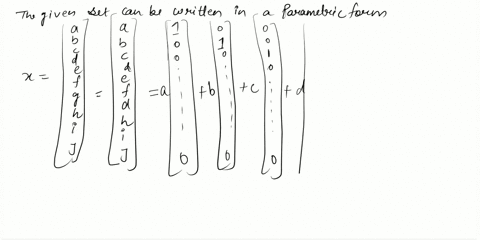 The given set can be written in a Parametric form
x = [a b c d e f g h i J] = [a b c d e f d h i J] = a [1 0 0 . . . 0] + b [0 1 0 . . . 0] + c [0 0 1 0 . . . 0] + d